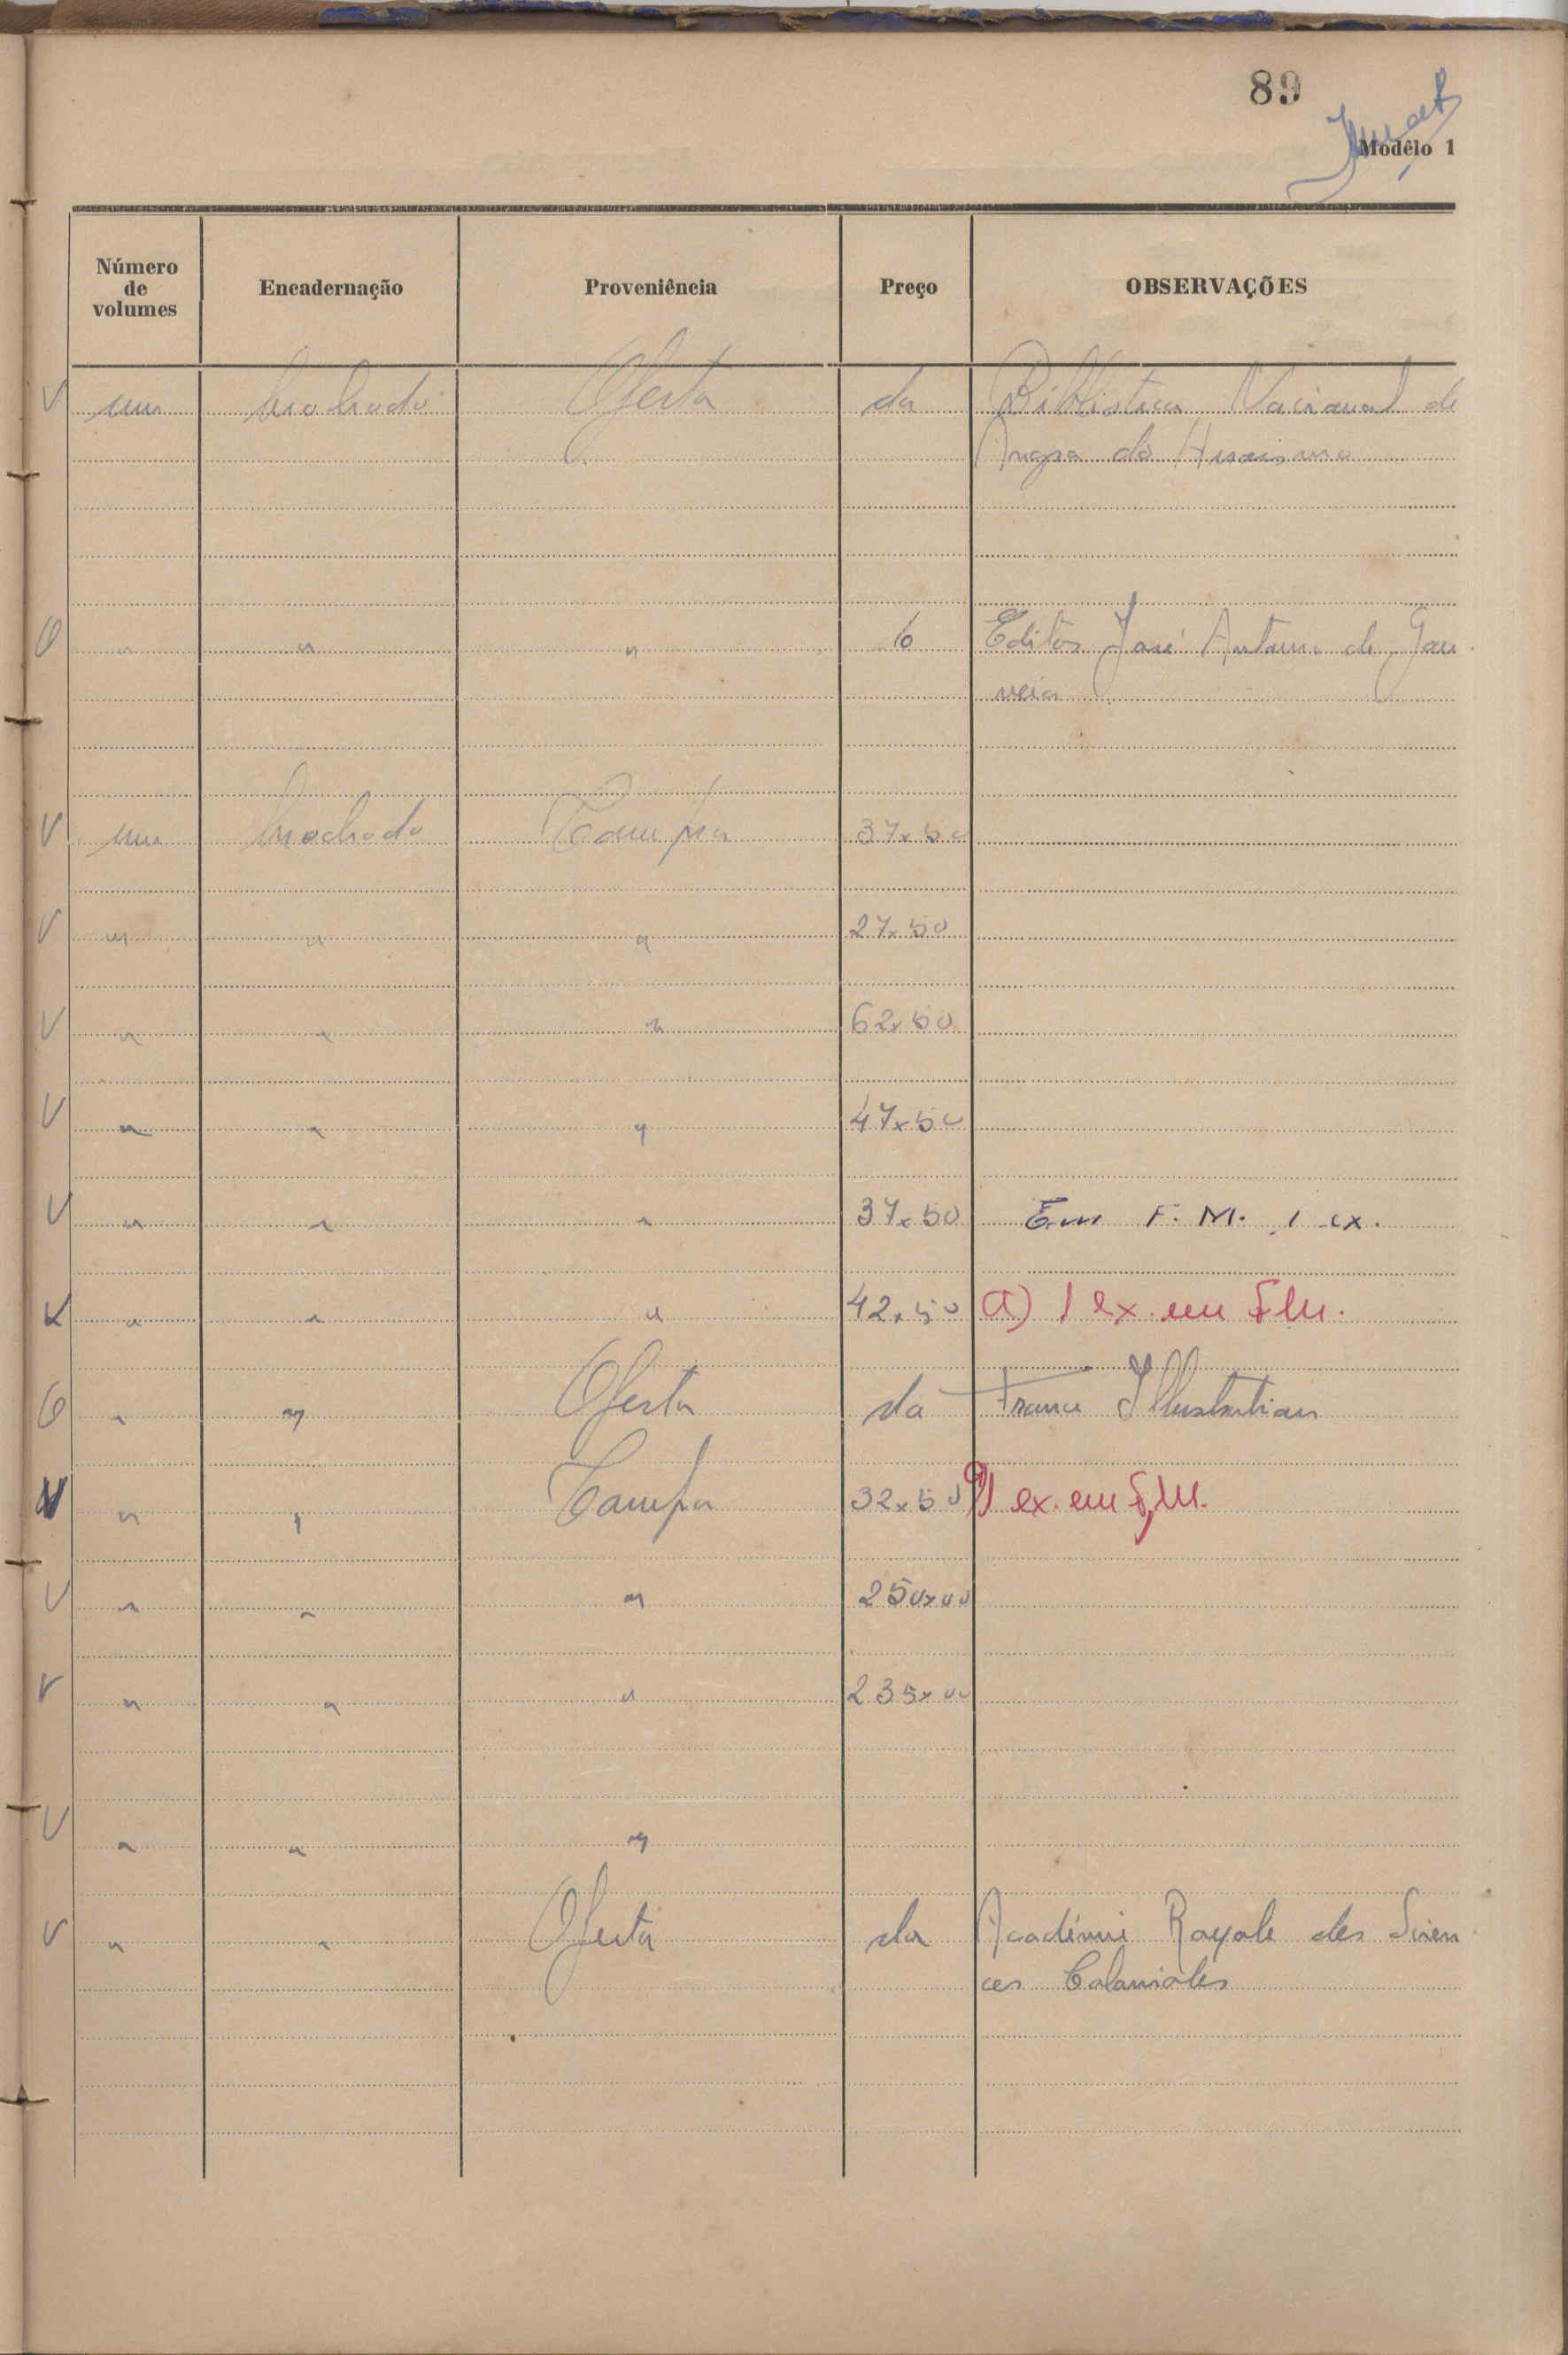 89
Modêlo 1
Número de volumes Encadernação Proveniência Preço OBSERVAÇÕES
V um brochado Oferta da Biblioteca Nacional de
Angra do Heroismo
O " " " do Editor José Antonio de Gou
veia
V um brochado Compra 37x50
V " " " 27x50
V " " " 62x50
V " " " 47x50
V " " " 37x50 Em F. M. 1 ex.
V " " " 42x50 a) 1 ex. em F.M.
O " " Oferta da France Illustration
V " " Compra 32x50 a) 1 ex. em F.M.
V " " " 250x00
V " " " 235x00
V " " "
V " " Oferta da Académie Royale des Scien
ces Coloniales